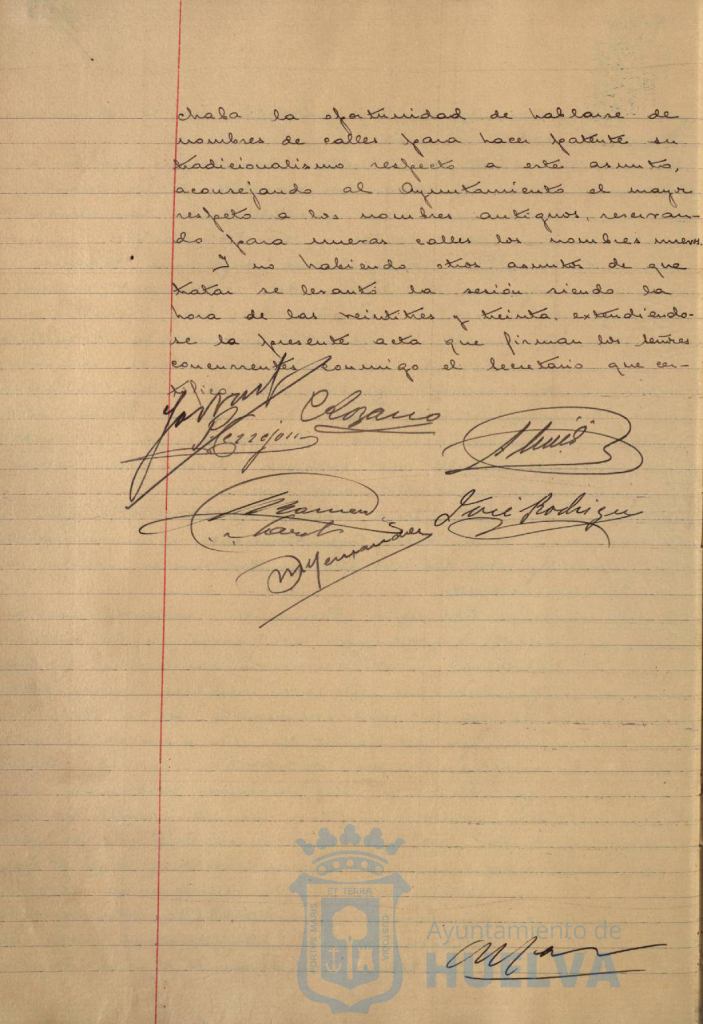 chaba la oportunidad de hablarse de
nombres de calles para hacer patente su
tradicionalismo respecto a este asunto,
aconsejando al Ayuntamiento el mayor
respeto a los nombres antiguos, reservan-
do para nuevas calles los nombres nuevos.
Y no habiendo otros asuntos de que
tratar se levantó la sesión siendo la
hora de las veintitres y treinta, extendiendo-
se la presente acta que firman los señores
concurrentes conmigo el Secretario que cer-
tifico
C Lozano
Terrejon
José Rodrigu
M Hernandez
ET TERRA
PORTUS MARIS
CUSTODIA
Ayuntamiento de
HUELVA